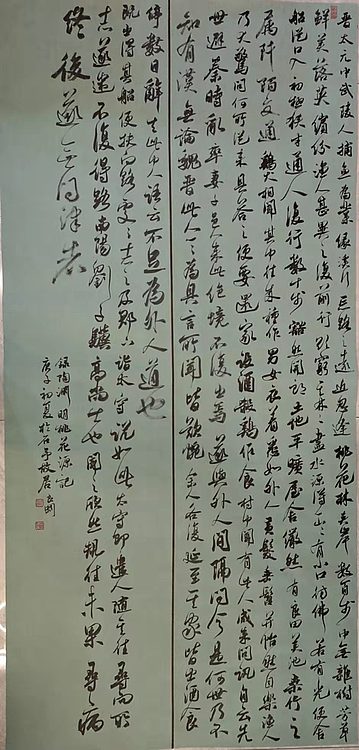 晋太元中武陵人捕魚為業緣溪行忘路之遠近忽逢桃花林夹岸數百步中無雜樹芳草
鲜美落英缤纷渔人甚異之復前行欲窮其林林盡水源得一山山有小口彷彿若有光便舍
船從口入初極狭才通人復行數十步豁然開朗土地平曠屋舍儼然有良田美池桑竹之
属阡陌交通鷄犬相聞其中往来種作男女衣着悉如外人黄髮垂髫并怡然自樂見漁人
乃大驚問所從来具答之便要還家設酒殺鷄作食村中聞有此人咸来問訊自云先
世避秦時亂率妻子邑人来此絶境不復出焉遂與外人間隔問今是何世乃不
知有漢無論魏晋此人一一為具言所聞皆歎惋余人各復延至其家皆出酒食
停數日辭去此中人語云不足為外人道也
既出得其船便扶向路處處志之及郡下詣太守説如此太守即遣人随其往尋向所
志遂迷不復得路南陽劉子驥高尚士也聞之欣然規往未果尋病
終後遂無問津者
録陶渊明桃花源記
庚子初夏於石亭故居